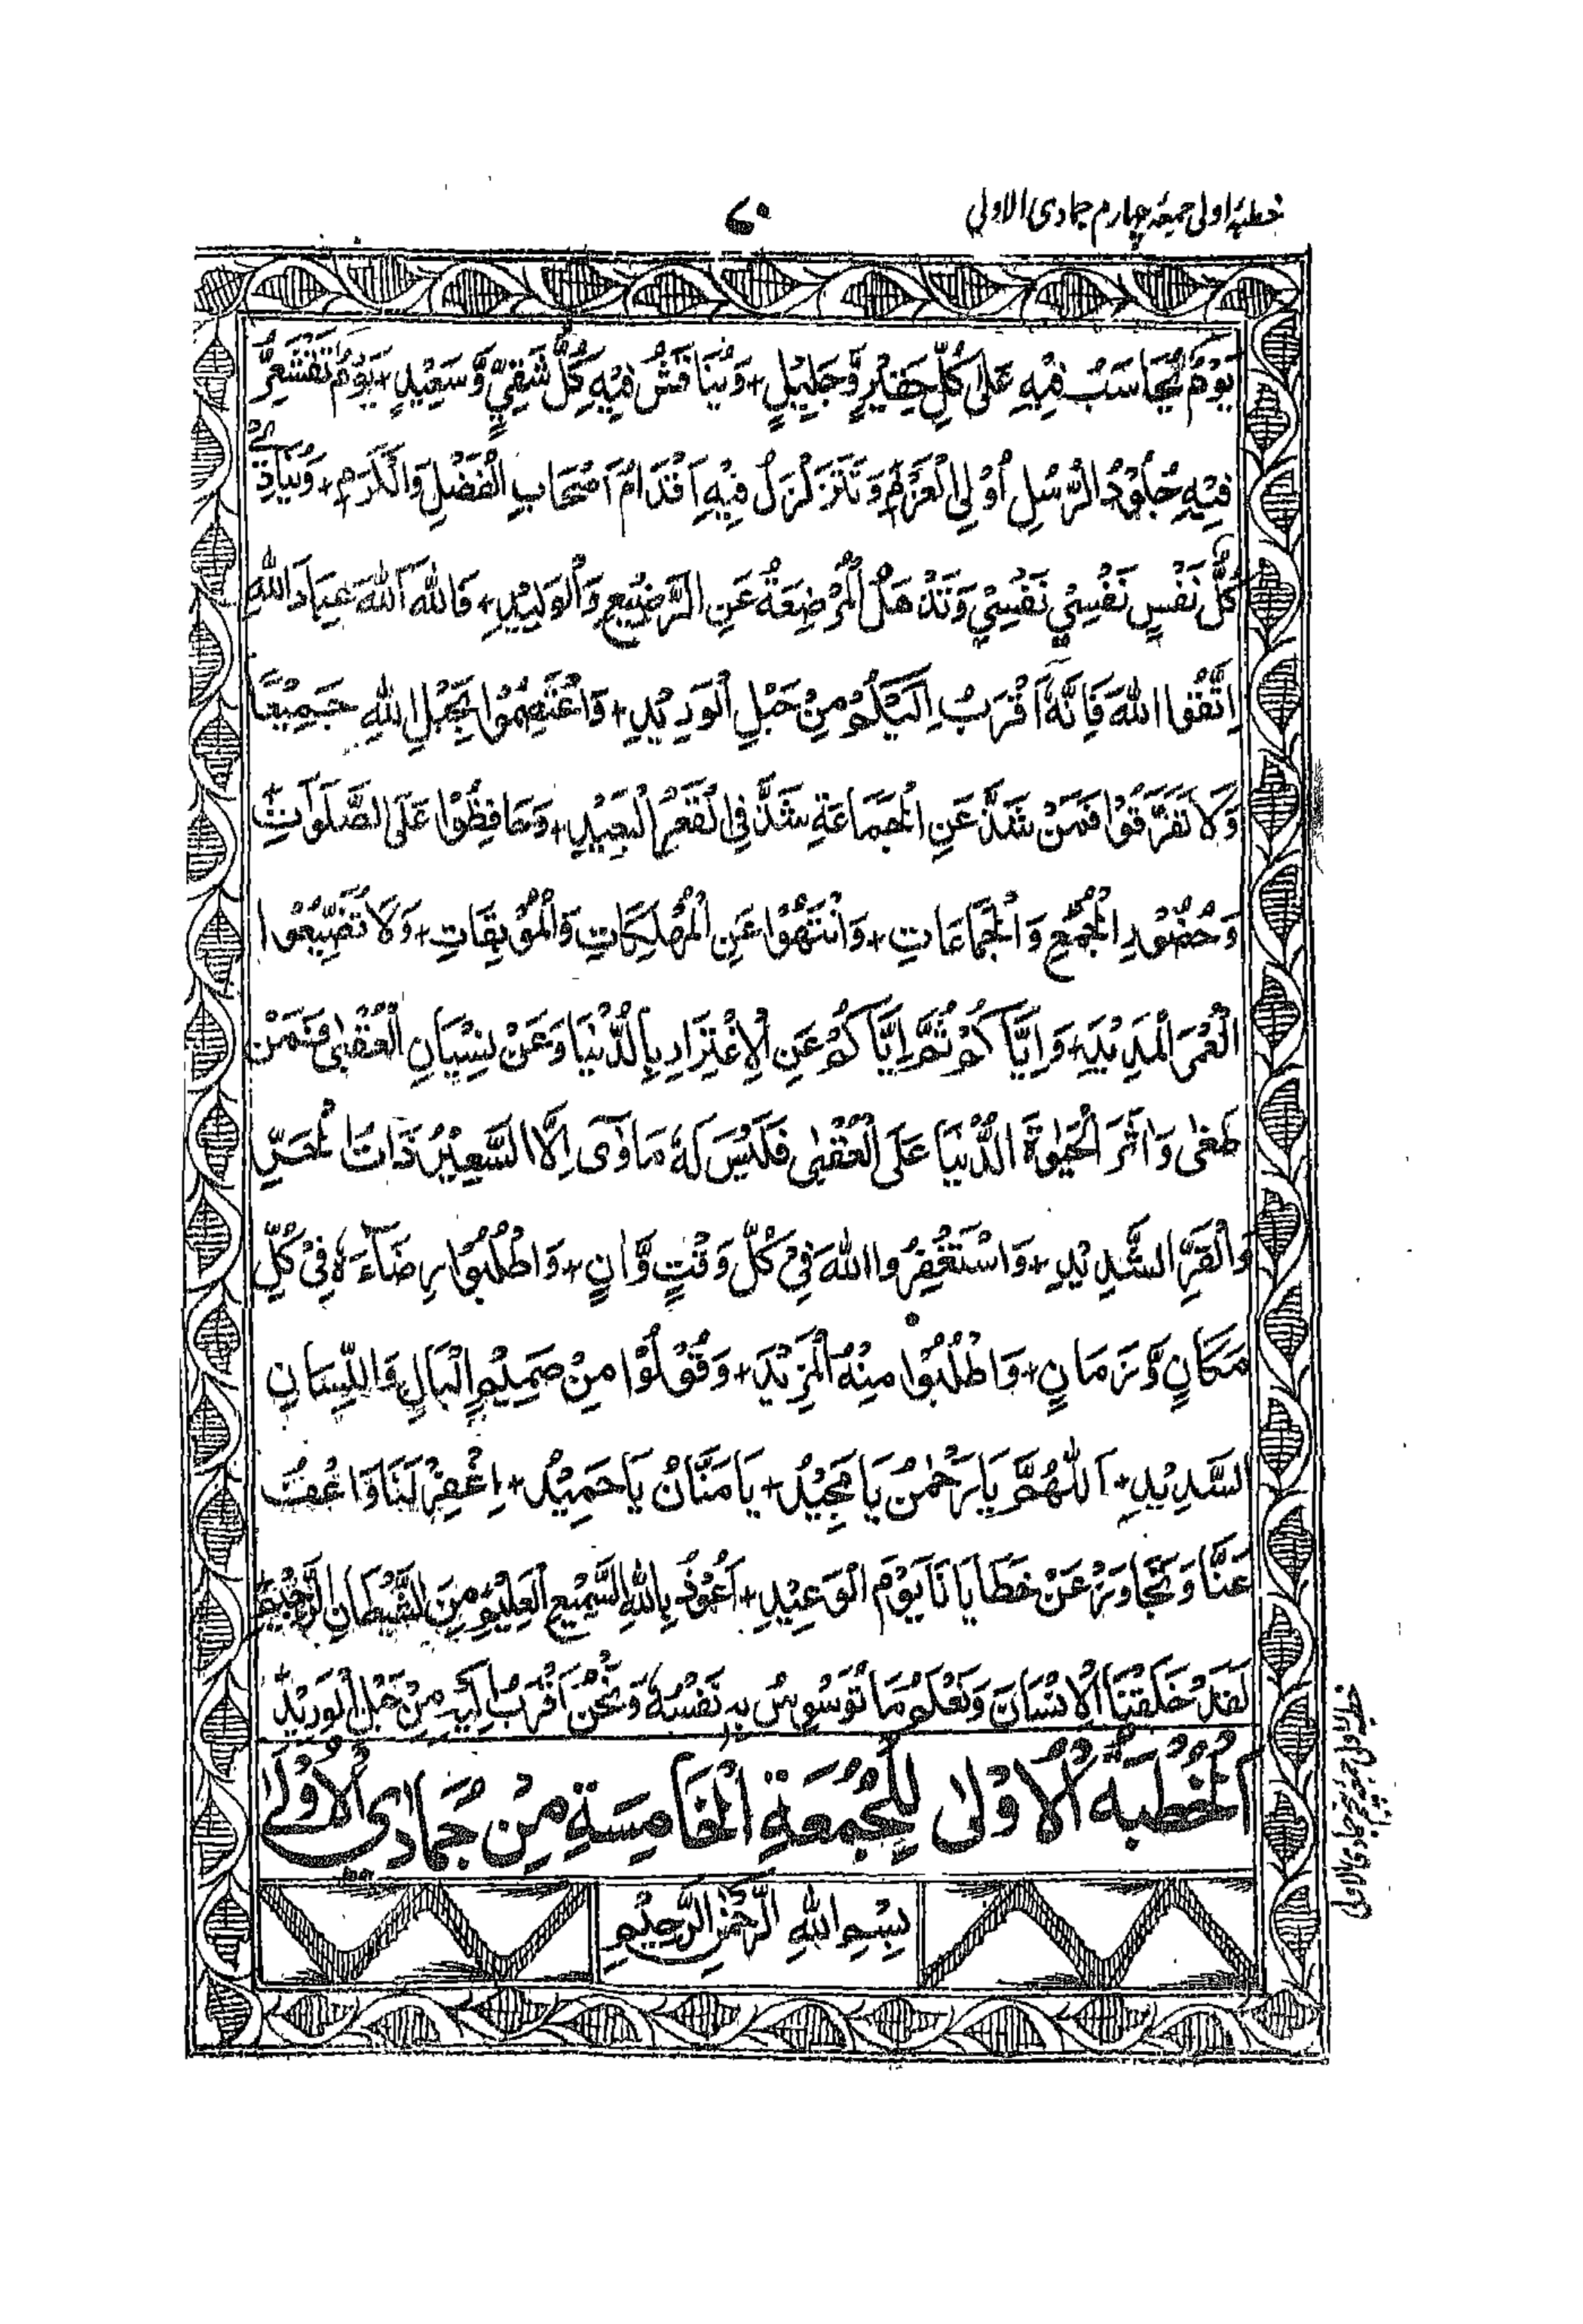 خطبۂ اولی جمعۂ چہارم جمادی الاولی
۷۰
يَوْمٌ يُحَاسَبُ فِيْهِ عَلٰى كُلِّ حَقِيْرٍ وَّجَلِيْلٍ + وَيُنَاقَشُ فِيْهِ كُلُّ شَقِيٍّ وَّسَعِيْدٍ + يَوْمٌ تَقْشَعِرُّ
فِيْهِ جُلُوْدُ الرُّسُلِ اُوْلِى الْعَزْمِ وَتَتَزَلْزَلُ فِيْهِ اَقْدَامُ اَصْحَابِ الْفَضْلِ وَالْكَرَمِ + وَيُنَادِيْ
كُلُّ نَفْسٍ نَفْسِيْ نَفْسِيْ وَتَذْهَلُ الْمُرْضِعَةُ عَنِ الرَّضِيْعِ وَالْوَلِيْدِ + فَاللّٰهَ اَللّٰهَ عِبَادَ اللّٰهِ
اِتَّقُوا اللّٰهَ فَاِنَّهٗ اَقْرَبُ اِلَيْكُمْ مِنْ حَبْلِ الْوَرِيْدِ + وَاعْتَصِمُوْا بِحَبْلِ اللّٰهِ جَمِيْعًا
وَّلَا تَفَرَّقُوْا فَمَنْ شَذَّ عَنِ الْجَمَاعَةِ شَذَّ فِي الْقَعْرِ الْبَعِيْدِ + وَحَافِظُوْا عَلَى الصَّلَوَاتِ
وَحُضُوْرِ الْجُمَعِ وَالْجَمَاعَاتِ + وَانْتَهُوْا عَنِ الْمُهْلِكَاتِ وَالْمُوْبِقَاتِ + وَلَا تُضَيِّعُوْا
الْعُمْرَ الْمَدِيْدَ + وَاِيَّاكُمْ ثُمَّ اِيَّاكُمْ عَنِ الْاِغْتِرَارِ بِالدُّنْيَا وَعَنْ نِسْيَانِ الْعُقْبٰى فَمَنْ
طَغٰى وَاٰثَرَ الْحَيٰوةَ الدُّنْيَا عَلَى الْعُقْبٰى فَلَيْسَ لَهٗ مَاْوٰى اِلَّا السَّعِيْرُ ذَاتُ الْحَرِّ
وَالْقَرِّ الشَّدِيْدِ + وَاسْتَغْفِرُوا اللّٰهَ فِيْ كُلِّ وَقْتٍ وَّاٰنٍ + وَاطْلُبُوْا رِضَآءَهٗ فِيْ كُلِّ
مَكَانٍ وَّزَمَانٍ + وَاطْلُبُوْا مِنْهُ الْمَزِيْدَ + وَقُوْلُوْا مِنْ صَمِيْمِ الْبَالِ وَاللِّسَانِ
السَّدِيْدِ + اَللّٰهُمَّ يَا رَحْمٰنُ يَا مَجِيْدُ + يَا مَنَّانُ يَا حَمِيْدُ + اِغْفِرْ لَنَا وَاعْفُ
عَنَّا وَتَجَاوَزْ عَنْ خَطَايَانَا يَوْمَ الْوَعِيْدِ + اَعُوْذُ بِاللّٰهِ السَّمِيْعِ الْعَلِيْمِ مِنَ الشَّيْطَانِ الرَّجِيْمِ
لَقَدْ خَلَقْنَا الْاِنْسَانَ وَنَعْلَمُ مَا تُوَسْوِسُ بِهٖ نَفْسُهٗ وَنَحْنُ اَقْرَبُ اِلَيْهِ مِنْ حَبْلِ الْوَرِيْدِ
اَلْخُطْبَةُ الْاُوْلٰى لِلْجُمُعَةِ الْخَامِسَةِ مِنْ جُمَادَى الْاُوْلٰى
بِسْمِ اللّٰهِ الرَّحْمٰنِ الرَّحِيْمِ